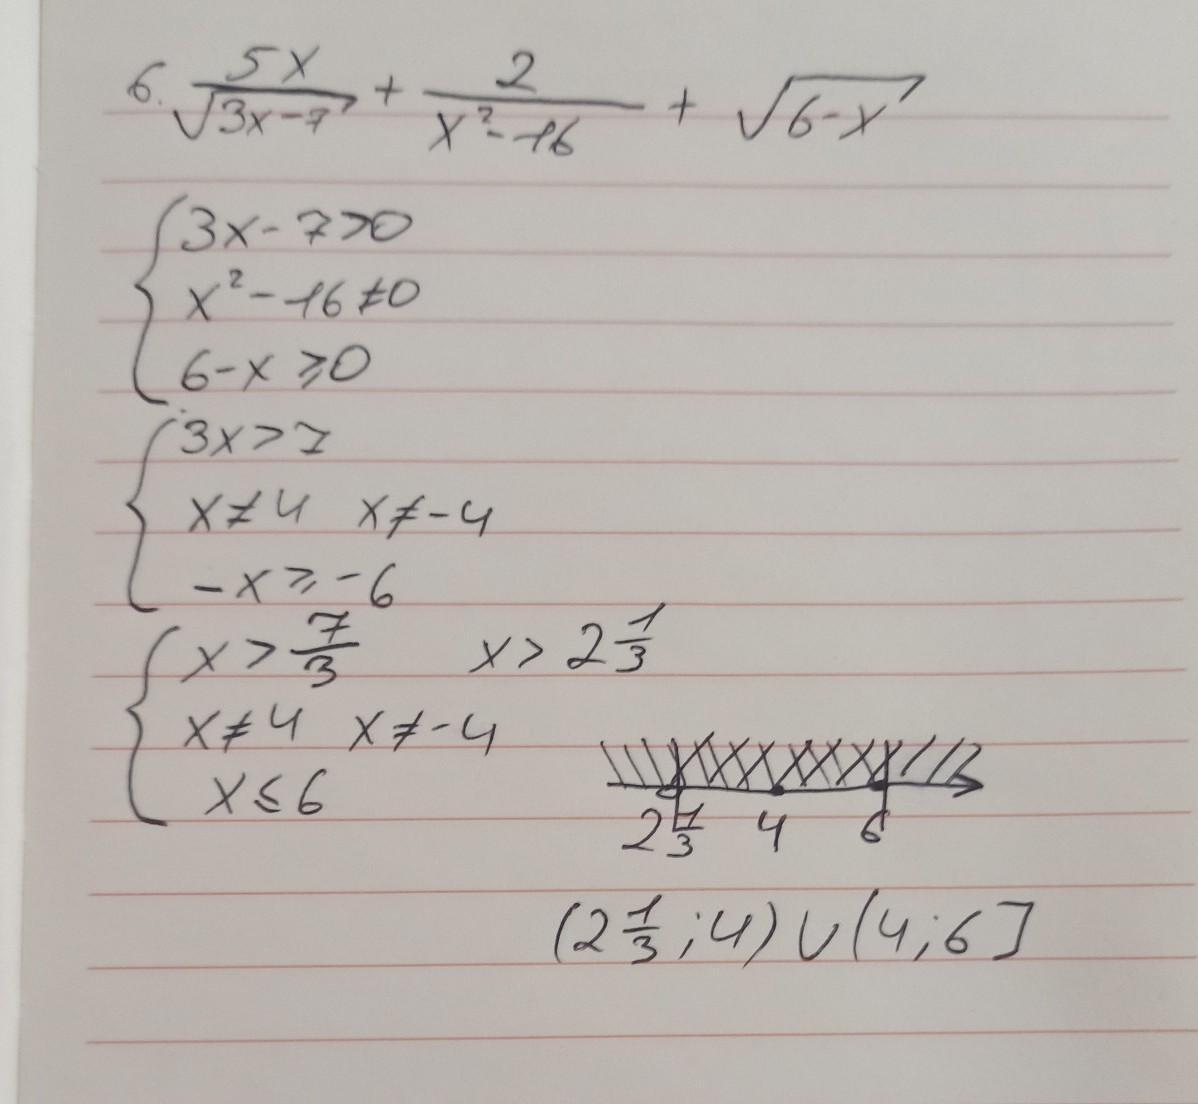 6. 5x/√(3x-7) + 2/(x²-16) + √(6-x)
3x-7>0
x²-16≠0
6-x⩾0
3x>7
x≠4 x≠-4
-x⩾-6
x>7/3 x>2 1/3
x≠4 x≠-4
x≤6
2 1/3 4 6
(2 1/3;4)∪(4;6]